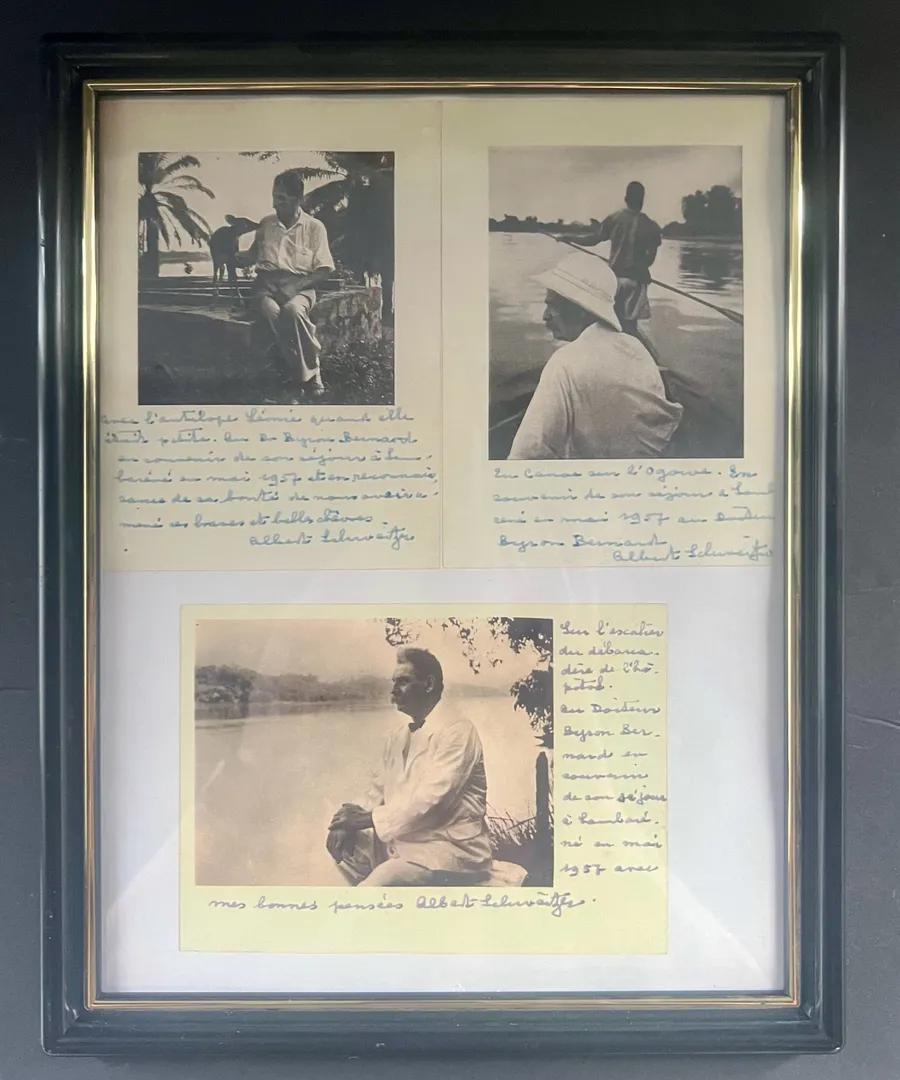 avec l'antilope Léonie quand elle
était petite. Au Dr Byron Bernard
en souvenir de son séjour à Lam-
baréné en mai 1957 et en reconnais-
sance de sa bonté de nous avoir a-
mené ces braves et belles chèvres.
Albert Schweitzer
En Canoe sur l'Ogowe. En
souvenir de son séjour à Lamb
réné en mai 1957 au Docteur
Byron Bernard
Albert Schweitzer
Sur l'escalier
du débarca-
dère de l'hô-
pital.
Au Docteur
Byron Ber-
nard en
souvenir
de son séjour
à Lambaré-
né en mai
1957 avec
mes bonnes pensées Albert Schweitzer.